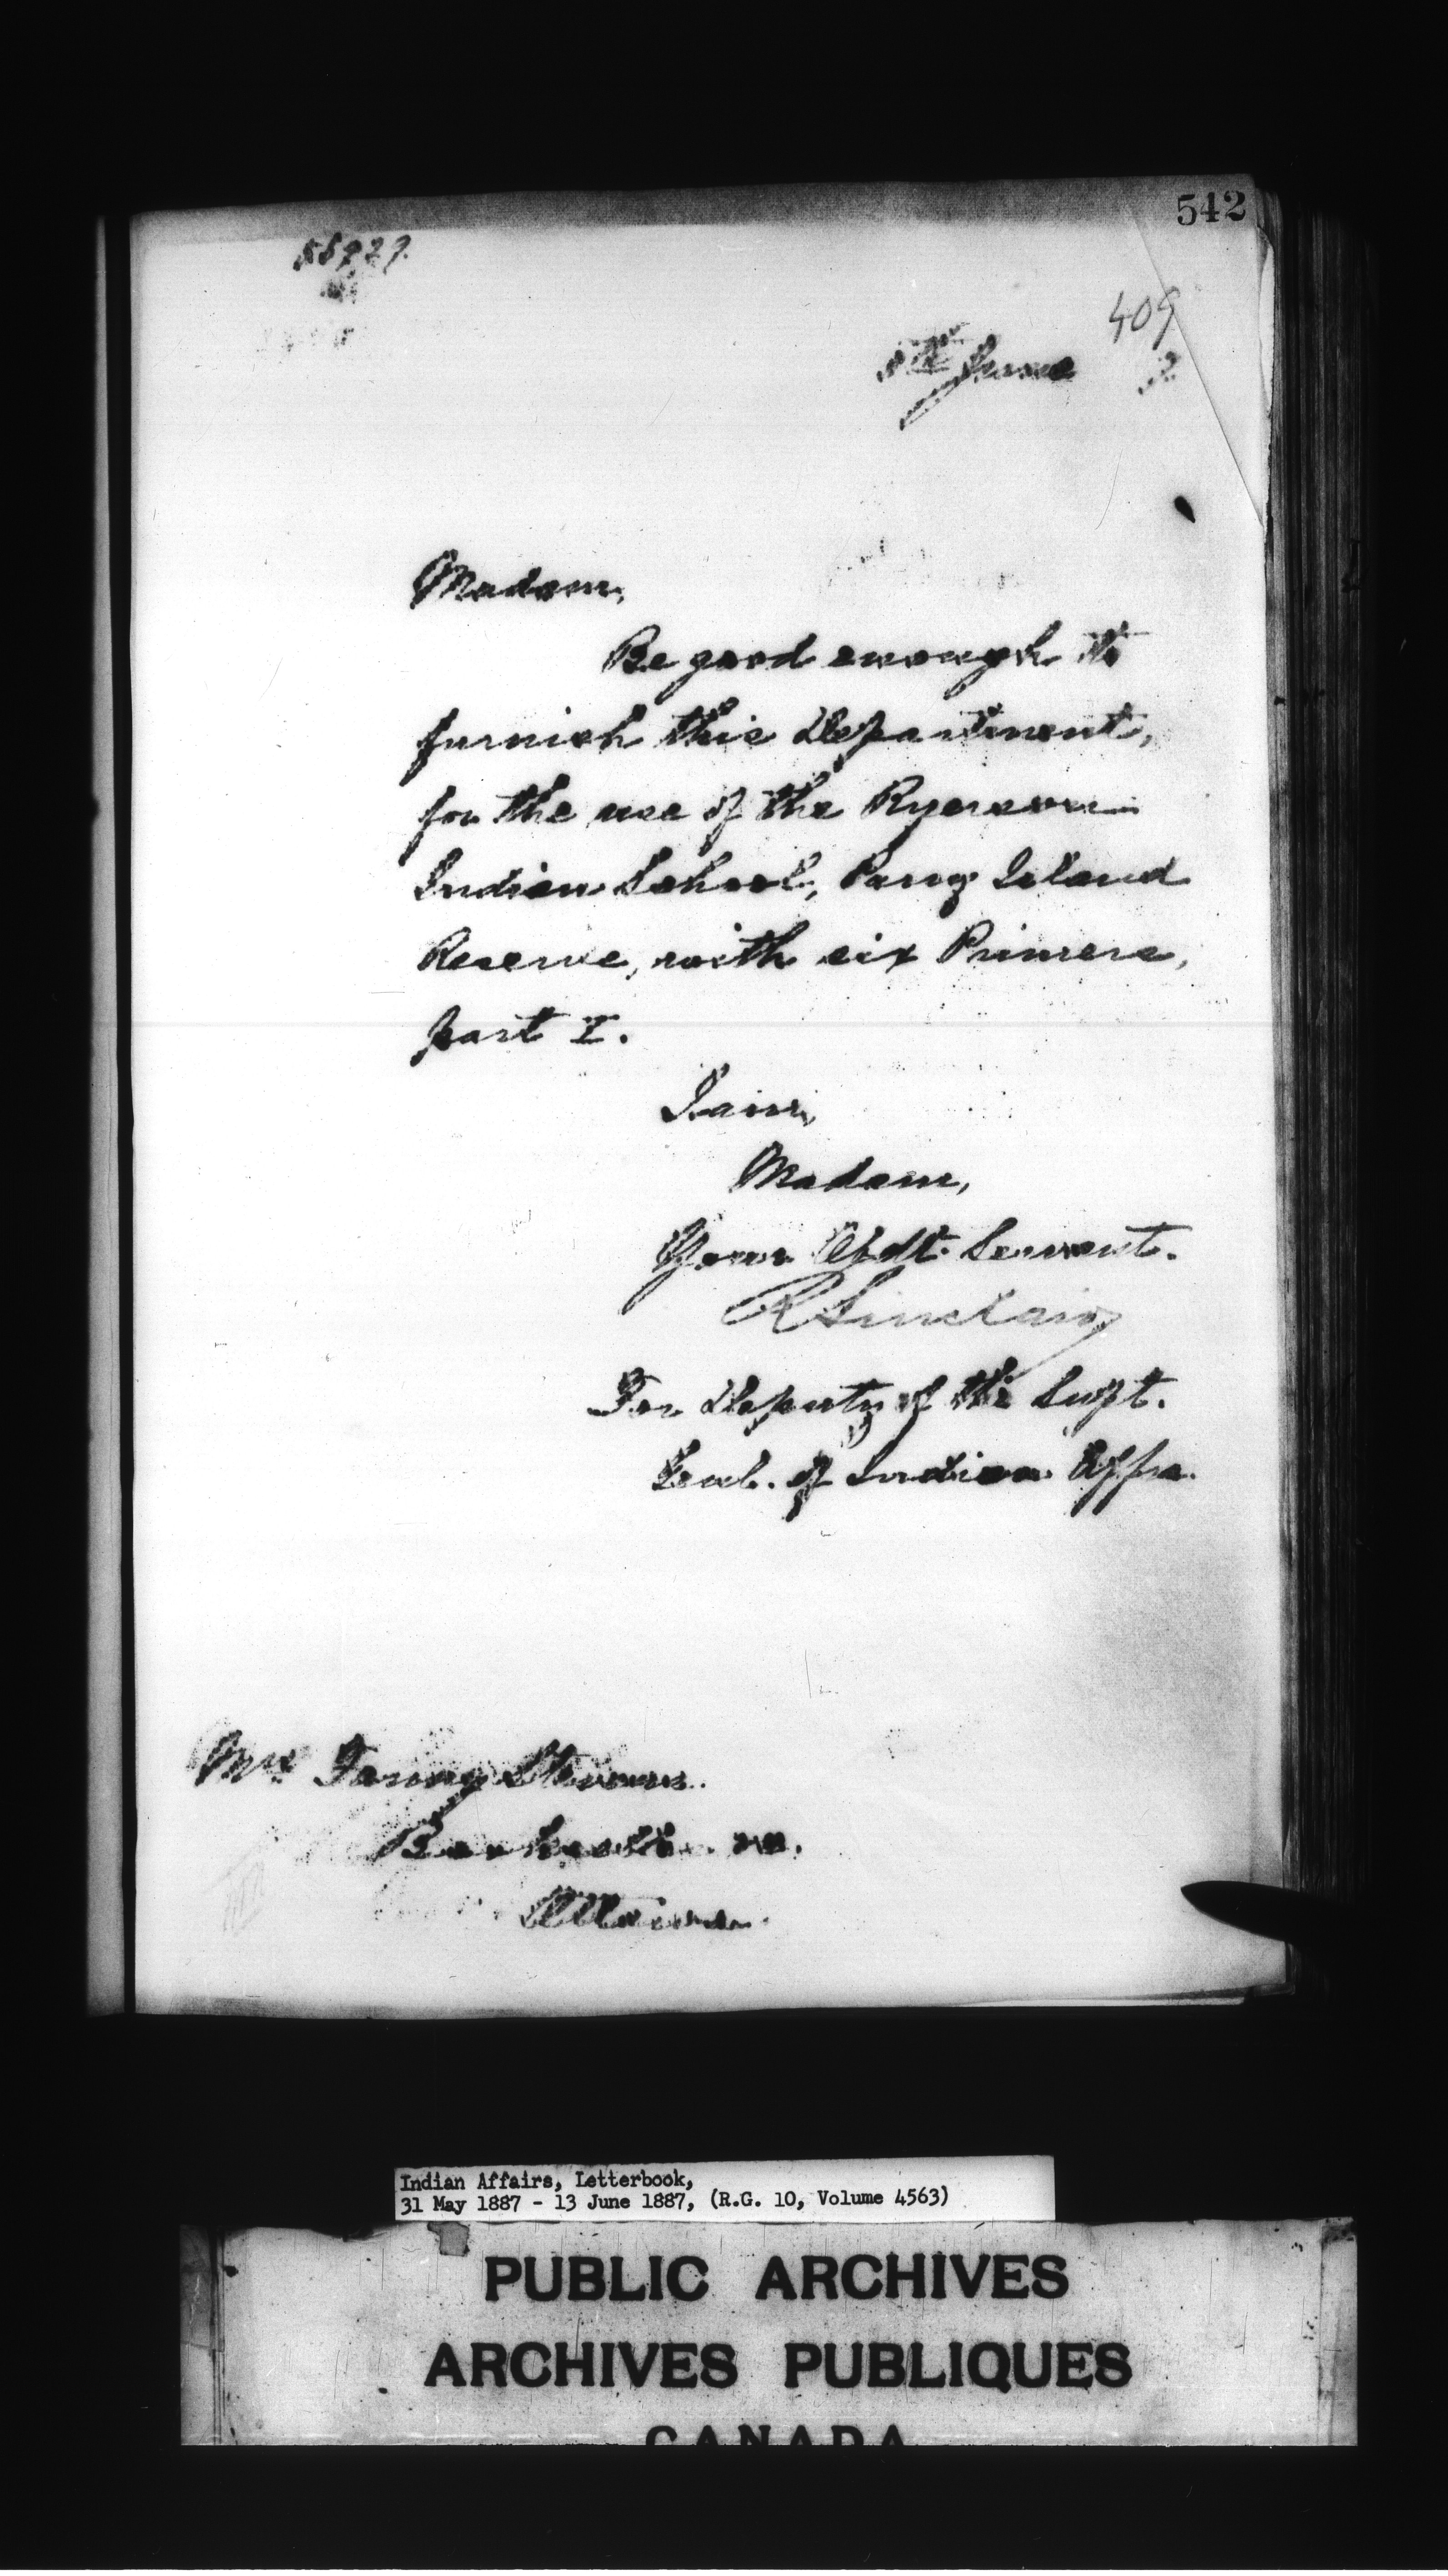 542
409
8th June 7
Madam,
Be good enough to
furnish this Department,
for the use of the Ryerson
Indian School, Parry Island
Reserve, with six Primers,
part I.
I am,
Madam,
Your Obdt. Servant.
R Sinclair
For Deputy of the Supt.
Genl. of Indian Affrs.
Mrs Fanny Stevens.
Ottawa
Indian Affairs, Letterbook,
31 May 1887 - 13 June 1887, (R.G. 10, Volume 4563)
PUBLIC ARCHIVES
ARCHIVES PUBLIQUES
CANADA